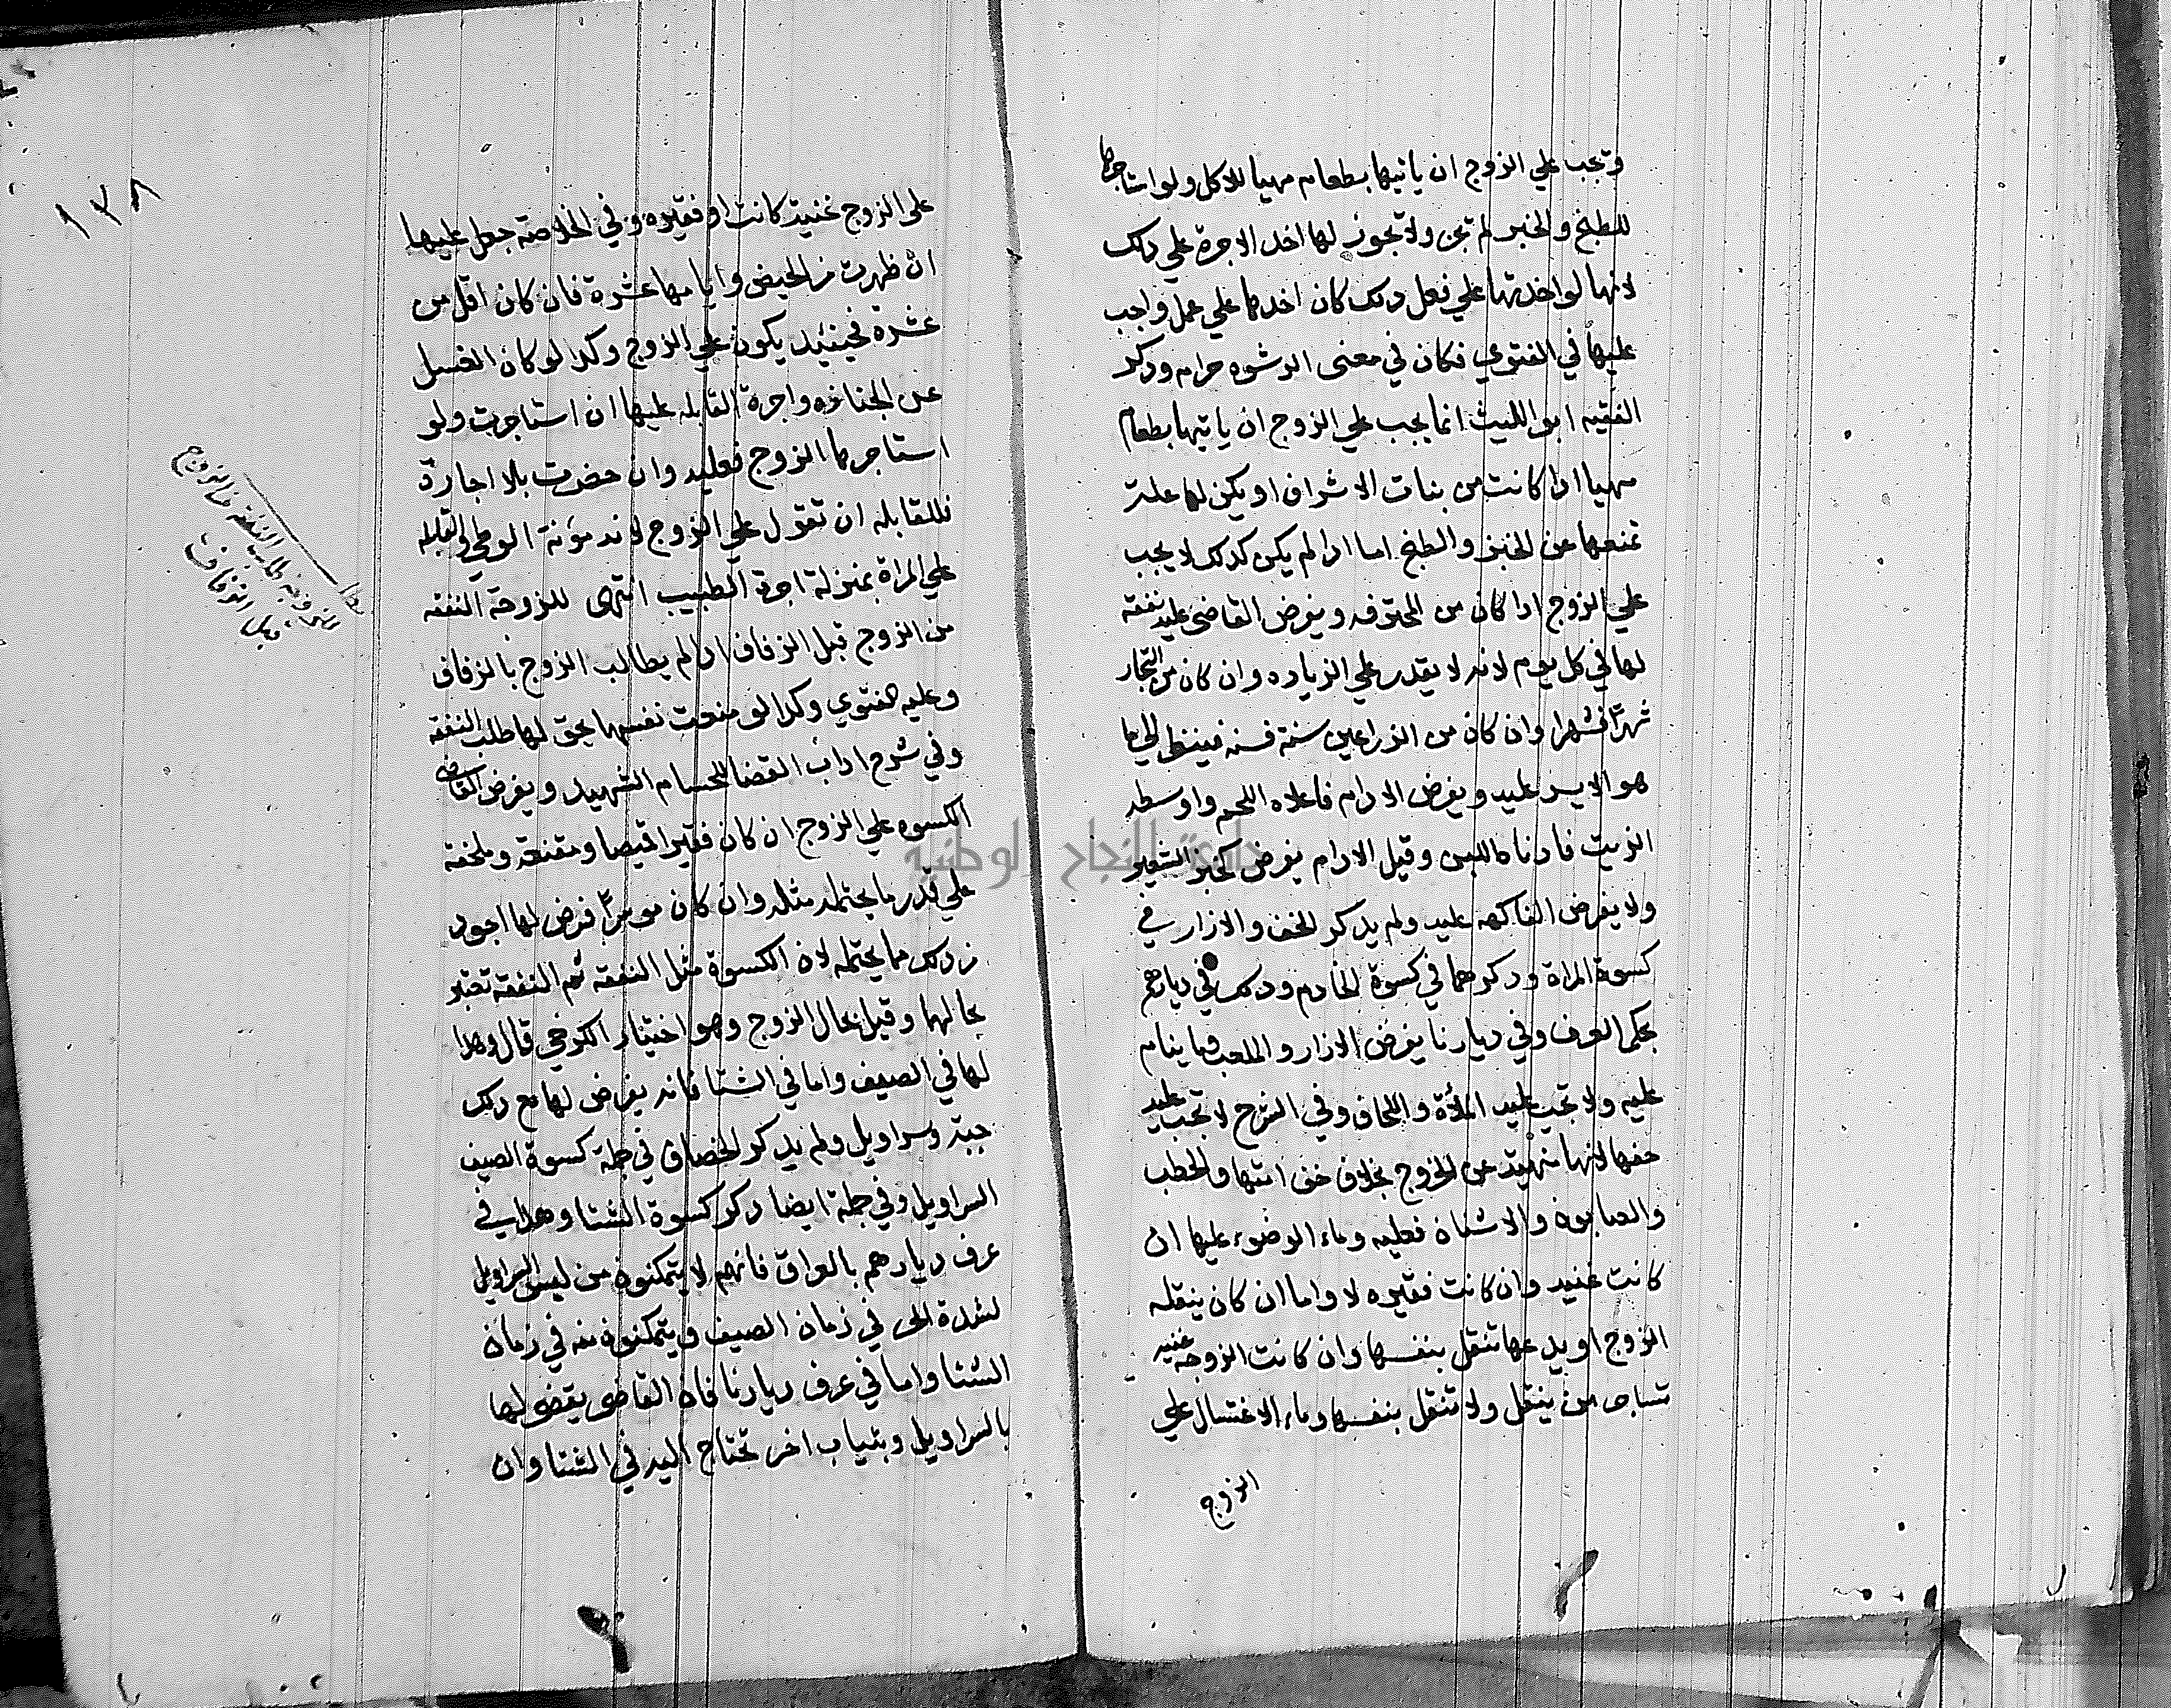 وتجب علي الزوج ان ياتيها بطعام مهيا للاكل ولو استاجرها
للطبخ والخبز لم تجز ولا تجوز لها اخد الاجرة علي دلك
لانها لو اخدتها علي فعل دلك كان اخدها علي عمل واجب
عليها في الفتوي فكان في معنى الرشوه حرام ودكر
الفقيه ابو الليث انما يجب علي الزوج ان ياتيها بطعام
مهيا ادا كانت من بنات الاشراف او يكن لها علة
تمنعها عن الخبز والطبخ اما ادا لم يكن كدلك لا يجب
علي الزوج ادا كان من المحترفه ويفرض القاضي عليه نفقة
لها في كل يوم لانه لا يقدر علي الزياده وان كان من التجار
شهرا فشهرا وان كان من الزراعين سنة فسنه فينظر الي ما
هو الايسر عليه ويفرض الادام فاعلاه اللحم واوسطه
الزيت فادناه اللبن وقيل الادام يفرض كخبز الشعير
ولا يفرض الفاكهه عليه ولم يدكر الخف والازار في
كسوة المراة ودكرهما في كسوة الخادم ودلك في ديارهم
بحكم العرف وفي ديارنا يفرض الازار والملعب وما ينام
عليه ولا تجب عليه الملأة واللحاف وفي الشرح لا تجب عليه
خفها لانها منهية عن الخروج بخلاف خف امتها والحطب
والصابون والاشنان فعليه وماء الوضوء عليها ان
كانت غنيه وان كانت فقيره لا واما ان كان ينقله
الزوج او يدعها تنقل بنفسها وان كانت الزوجه غنيه
تستاجر من ينقل ولا تنقل بنفسها وماء الاغتسال علي
الزوج
١٣٨
على الزوج غنية كانت او فقيره وفي الخلاصة جعل عليها
ان طهرت من الحيض وايامها عشرة فان كان اقل من
عشرة فحينئد يكون علي الزوج وكدا لو كان الغسل
عن الجنابه واجرة القابله عليها ان استاجرت ولو
استاجرها الزوج فعليه وان حضرت بلا اجارة
فللقابله ان تقول علي الزوج لانه مؤنة الوطي والقابله
علي المراة بمنزلة اجرة الطبيب انتهى للزوجة النفقه
من الزوج قبل الزفاف ان لم يطالب الزوج بالزفاف
وعليه الفتوي وكدا لو منعت نفسها بحق لها طلب النفقه
وفي شرح اداب القضا للحسام الشهيد ويفرض القاضي
الكسوه علي الزوج ان كان فقيرا قميصا ومقنعة وملحفة
علي قدر ما يحتمله مثله وان كان موسرا فرض لها اجود
من دلك مما يحتمله لان الكسوة مثل النفقه ثم النفقه تعتبر
بحالهما وقيل بحال الزوج وهو اختيار الكرخي قال وهدا
لها في الصيف واما في الشتا فانه يفرض لها مع دلك
جبة وسراويل ولم يدكر الخصاف في جملة كسوة الصيف
السراويل وفي جملة ايضا دكر كسوة الشتا وهدا في
عرف ديارهم بالعراق فانهم لا يتمكنون من لبس السراويل
لشدة الحر في زمان الصيف ويتمكنون منه في زمان
الشتا واما في عرف ديارنا فان القاضي يقضي لها
بالسراويل وبثياب اخر تحتاج اليه في الشتا وان
الزوجه طالب النفقه من الزوج
قبل الزفاف
جامعة النجاح الوطنية